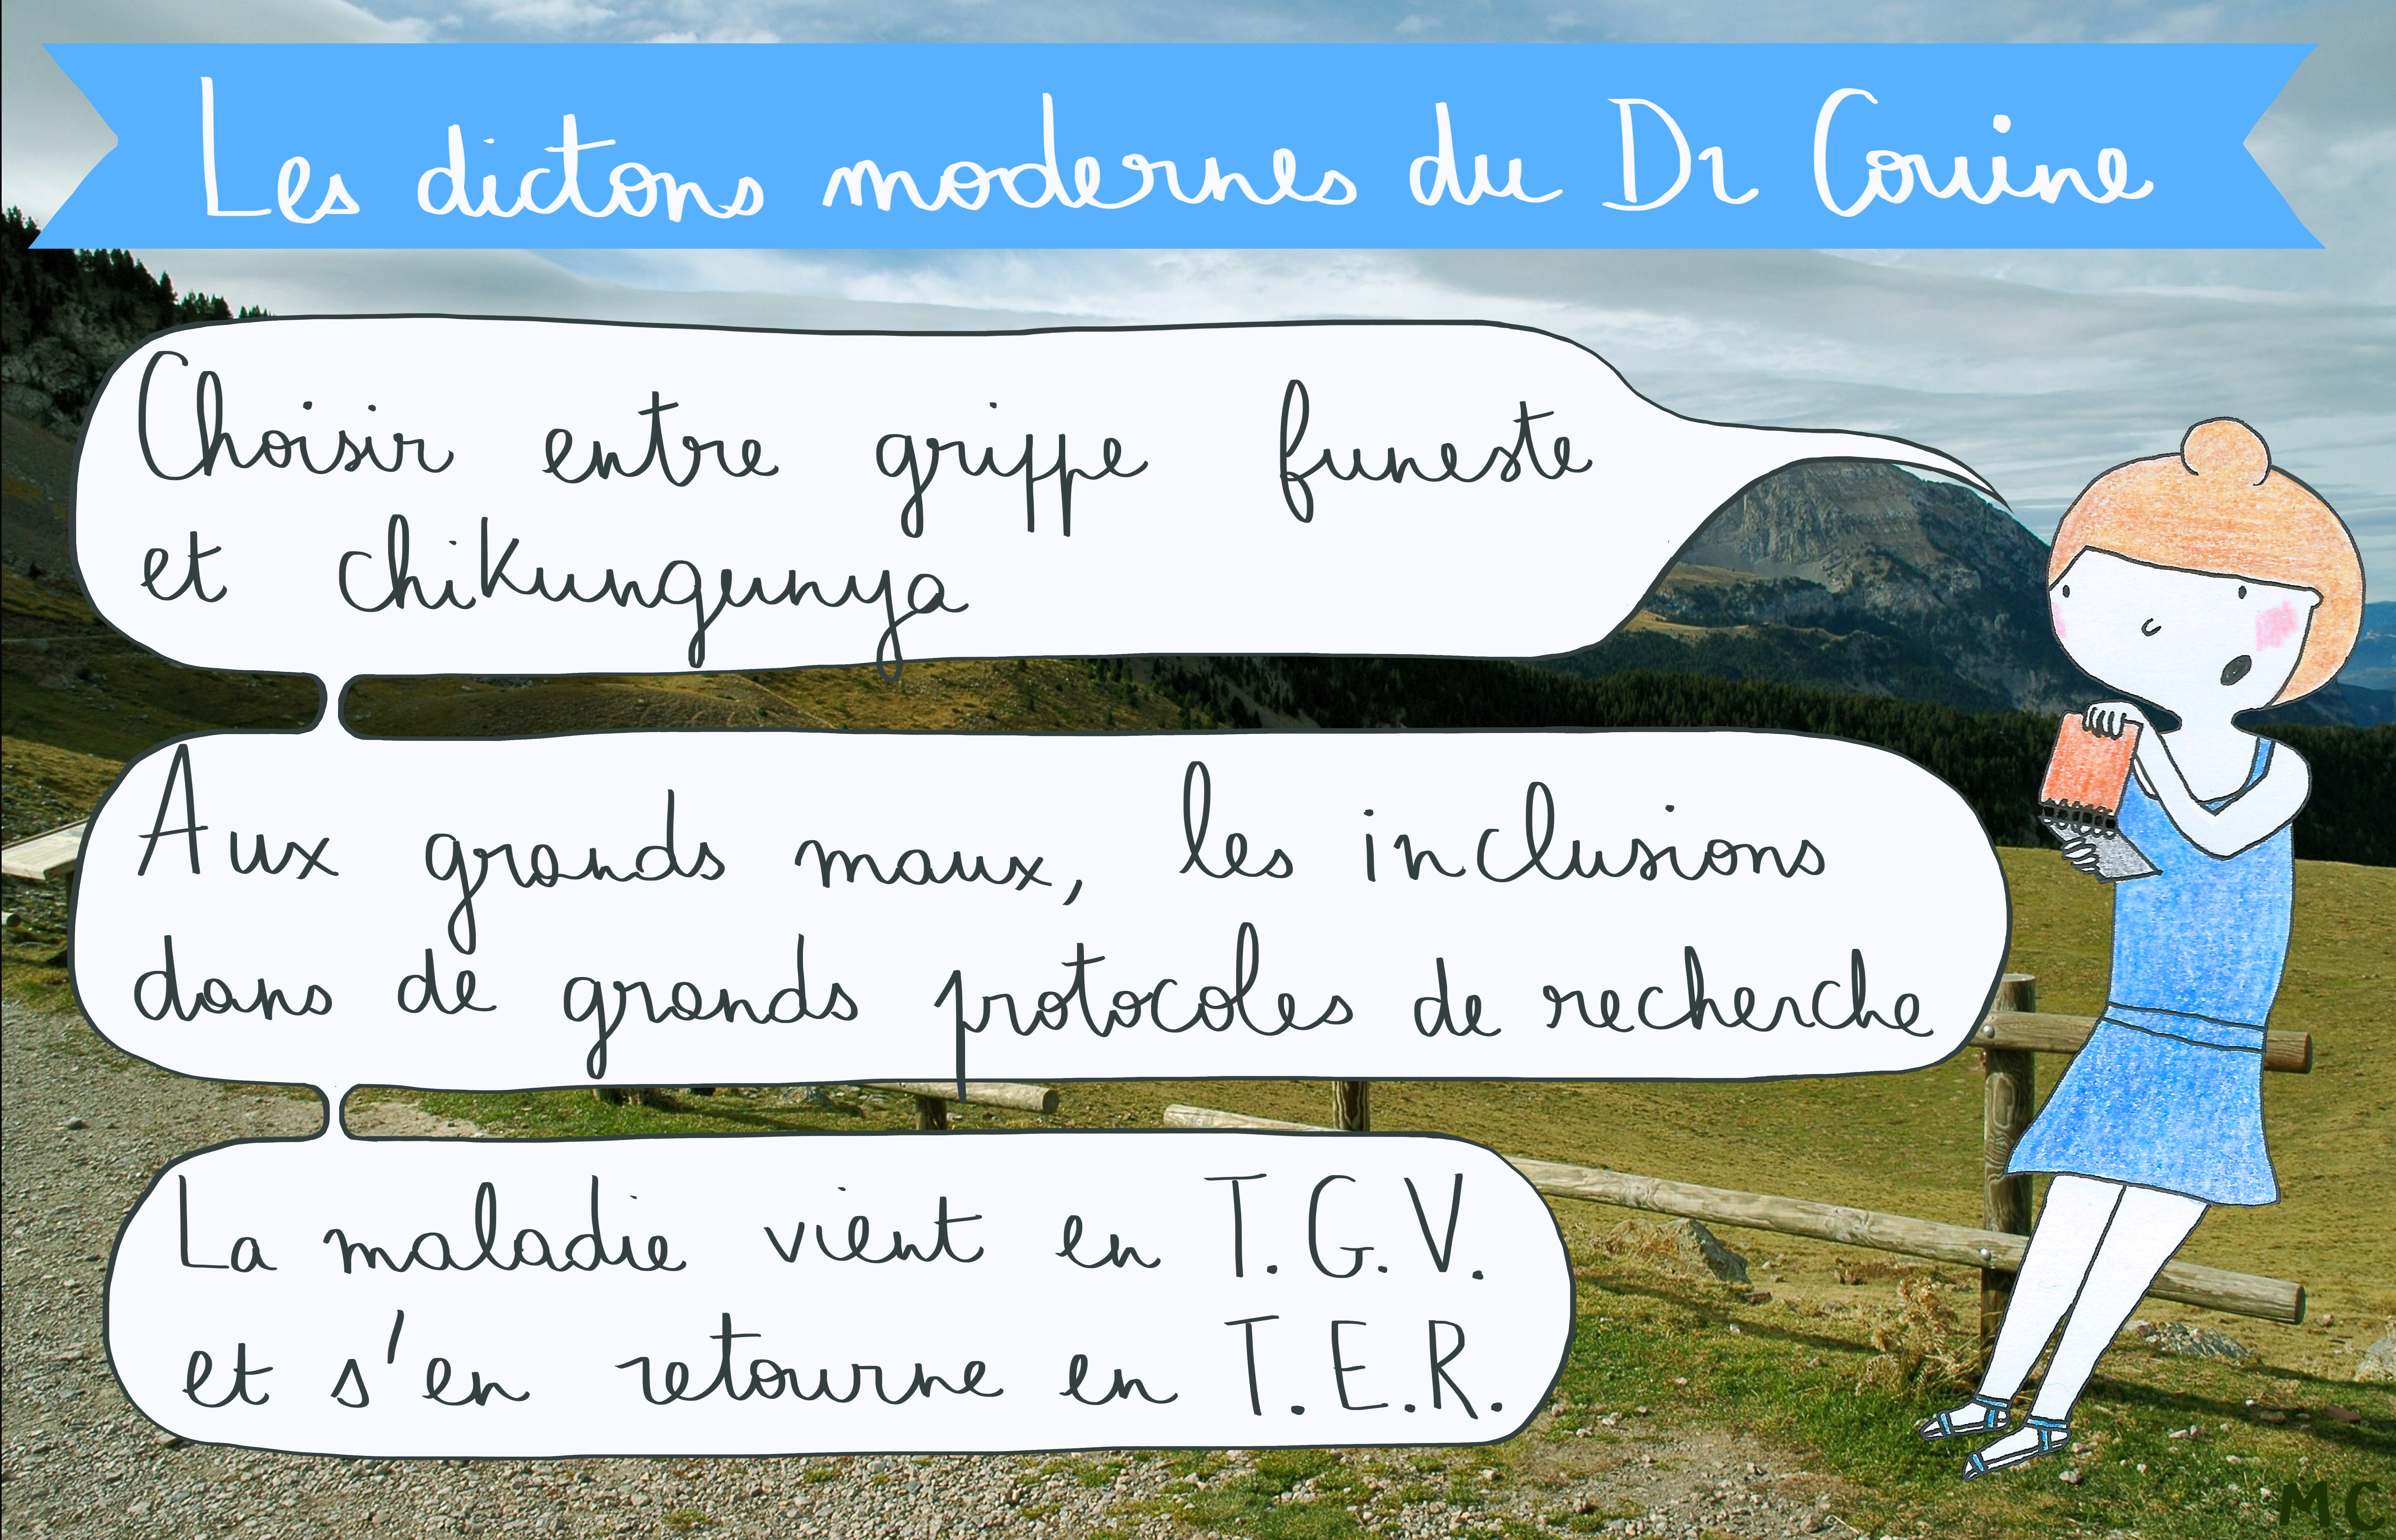 Les dictons modernes du Dr Couine
Choisir entre grippe funeste
et chikungunya
Aux grands maux, les inclusions
dans de grands protocoles de recherche
La maladie vient en T.G.V.
et s'en retourne en T.E.R.
MC